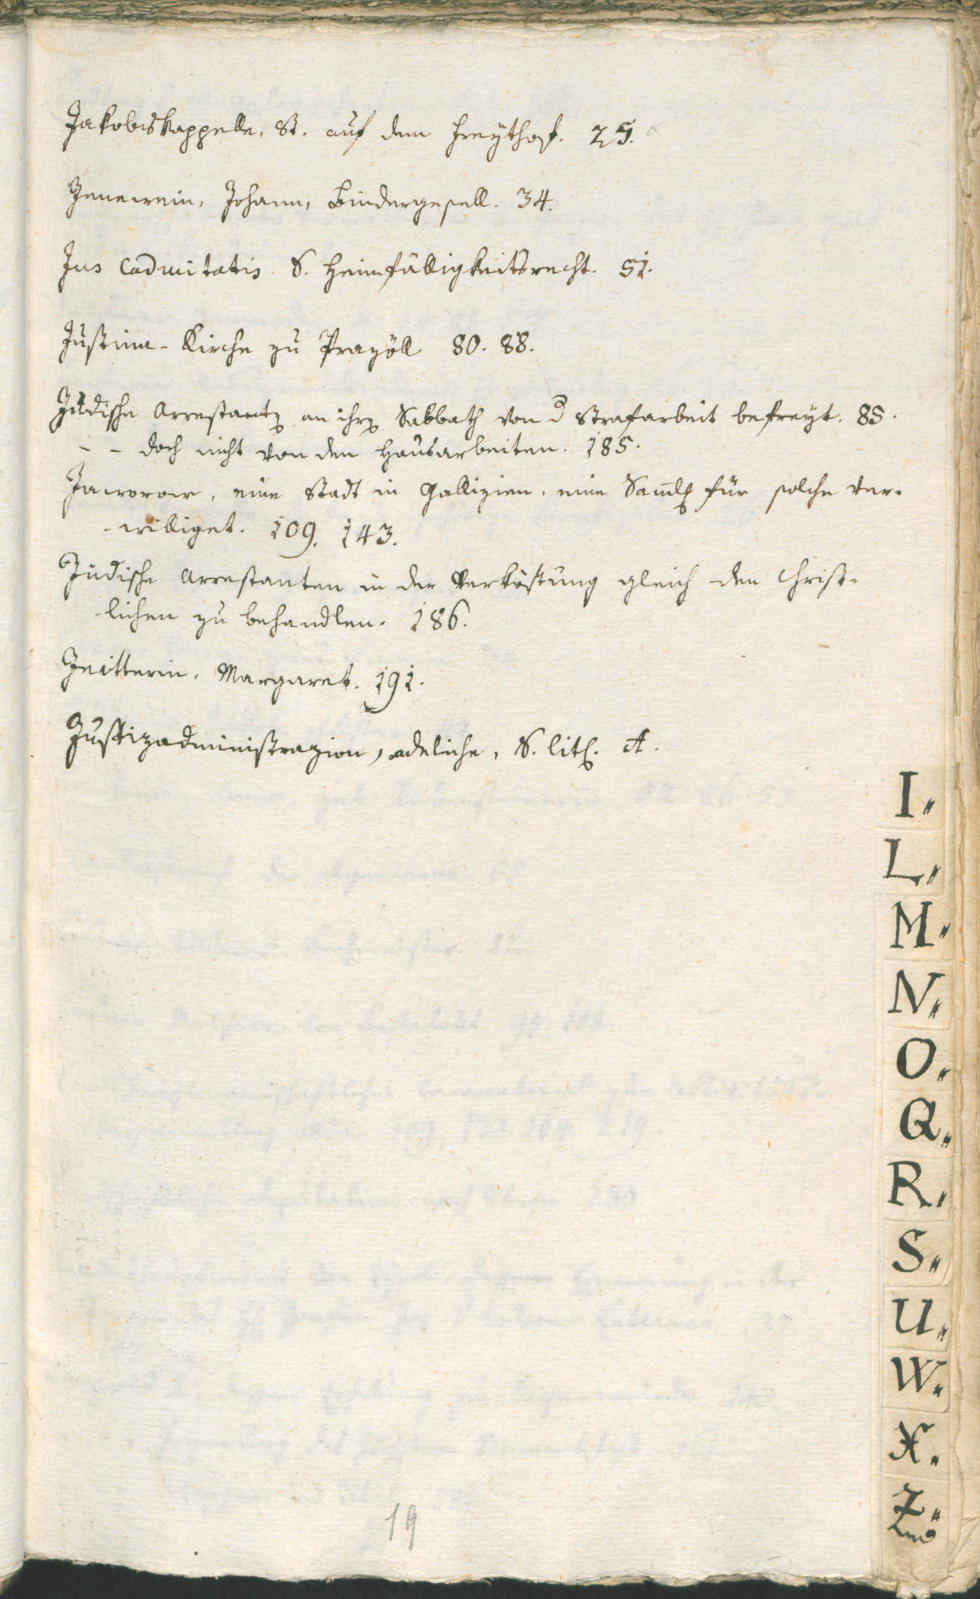 Jakobskappelle, St. auf dem Freythof. 25.
Jenewein, Johann, Bindergesell. 34.
Jus caducitatis S. Heimfälligkeitsrecht. 51.
Justina-Kirche zu Prazöll 80. 88.
Jüdische Arrestanten an ihren Sabbath von der Strafarbeit befreyt. 85.
- - doch nicht von den Hausarbeiten. 185.
Jaworow, eine Stadt in Gallizien, eine Samlg für solche ver-
-williget. 109. 143.
Jüdische Arrestanten in der Verköstung gleich den Christ-
lichen zu behandlen. 186.
Margaret. 191.
Justizadministrazion, adeliche, S. lit. A.
I.
L.
M.
N.
O.
Q.
R.
S.
U.
W.
X.
Z.
19